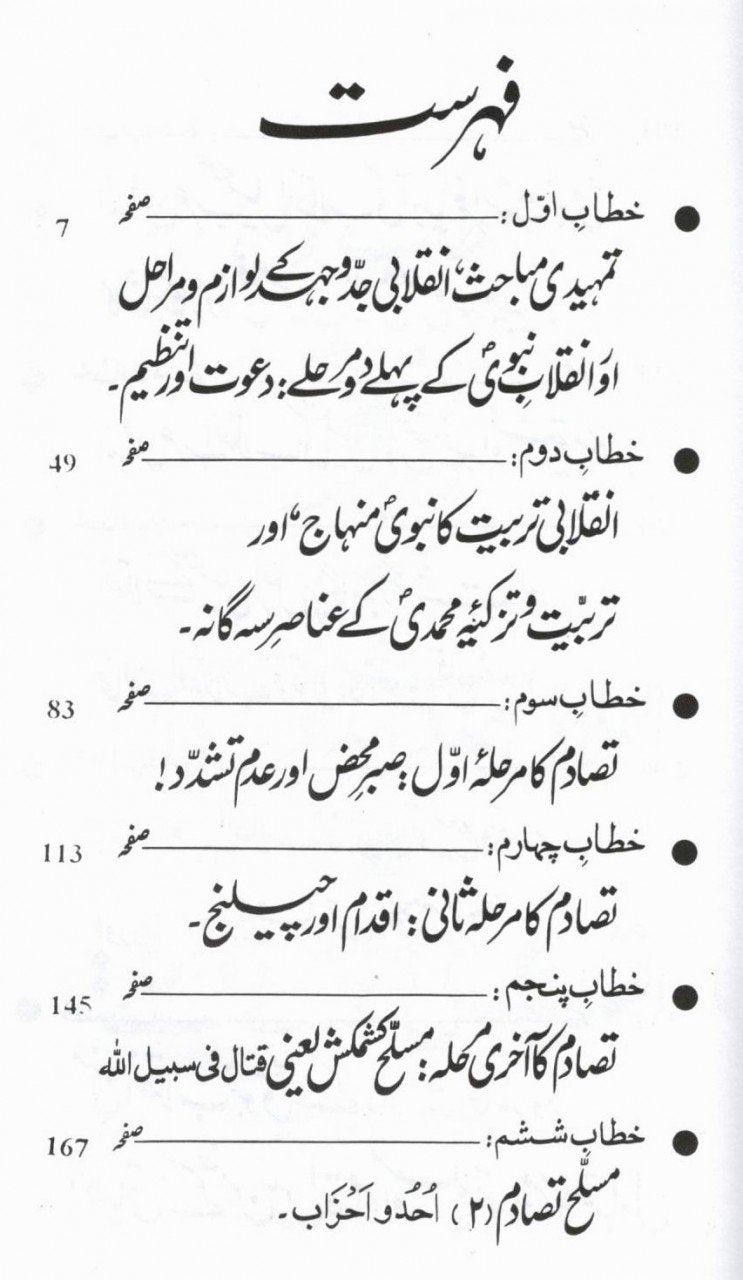 فہرست
خطابِ اوّل: صفحہ 7
تمہیدی مباحث، انقلابی جدّوجہد کے لوازم و مراحل
اور انقلابِ نبویؐ کے پہلے دو مرحلے: دعوت اور تنظیم۔
خطابِ دوم: صفحہ 49
انقلابی تربیت کا نبویؐ منہاج، اور
تربیّت و تزکیۂ محمدیؐ کے عناصرِ سہ گانہ۔
خطابِ سوم: صفحہ 83
تصادم کا مرحلۂ اوّل: صبرِ محض اور عدم تشدّد!
خطابِ چہارم: صفحہ 113
تصادم کا مرحلہ ثانی: اقدام اور چیلنج۔
خطابِ پنجم: صفحہ 145
تصادم کا آخری مرحلہ: مسلّح کشمکش یعنی قتال فی سبیل اللہ
خطابِ ششم: صفحہ 167
مسلّح تصادم (۲) اُحُد و اَحْزَاب۔